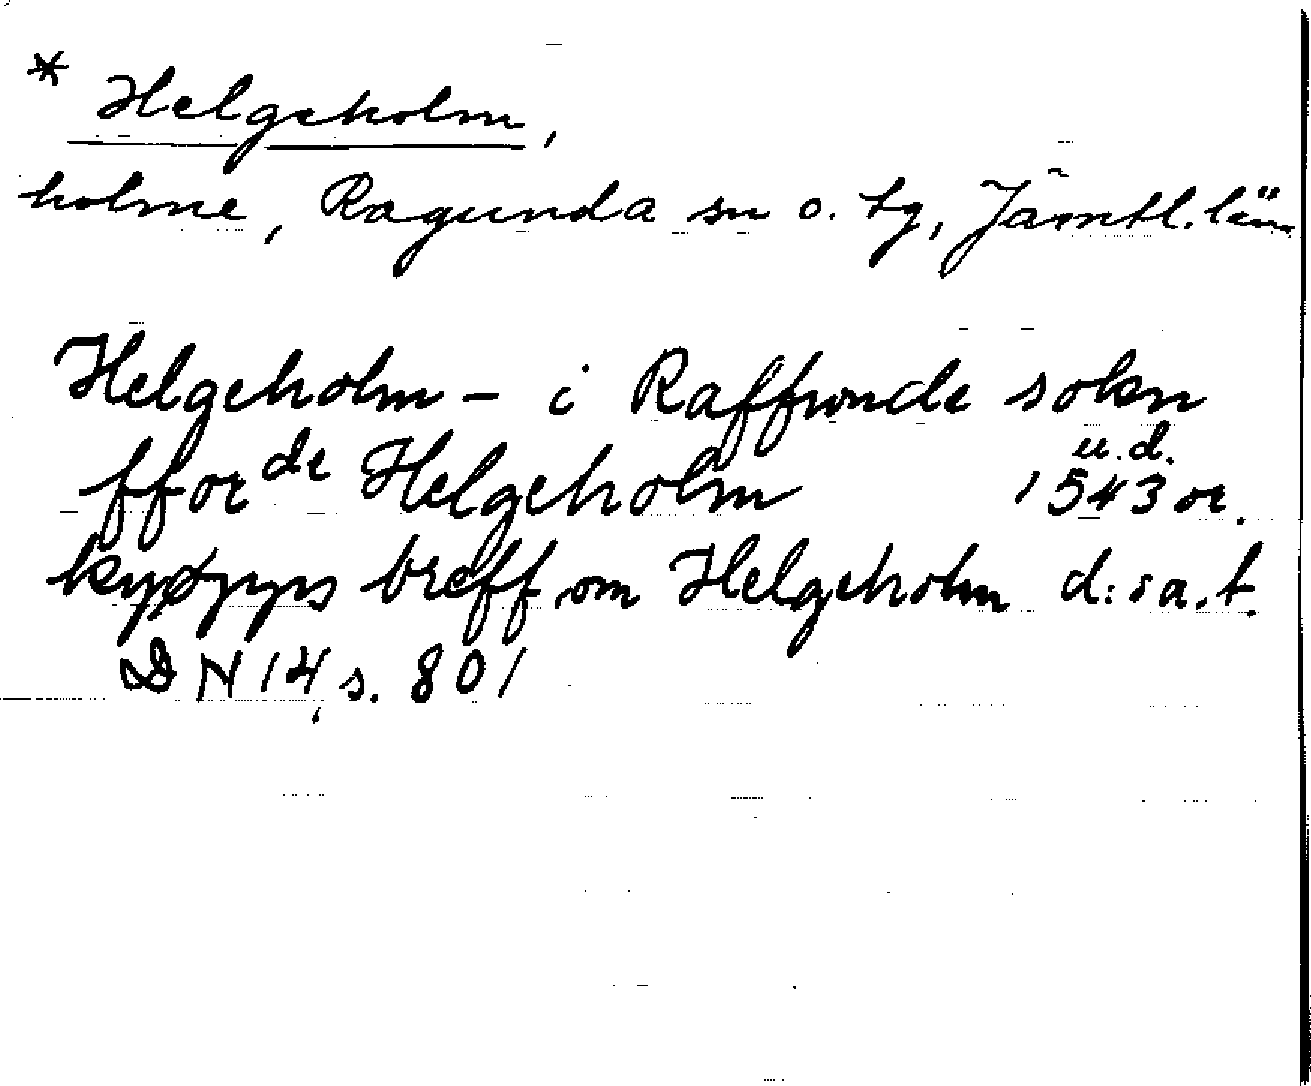 * Helgeholm,
holme, Ragunda sn o. tg, Jämtl. län
Helgeholm – i Raffwnde sokn
fforde Helgeholm u.d. 1543 or.
kyøpyss breff om Helgeholm d:o s a. st.
DN 14, s. 801